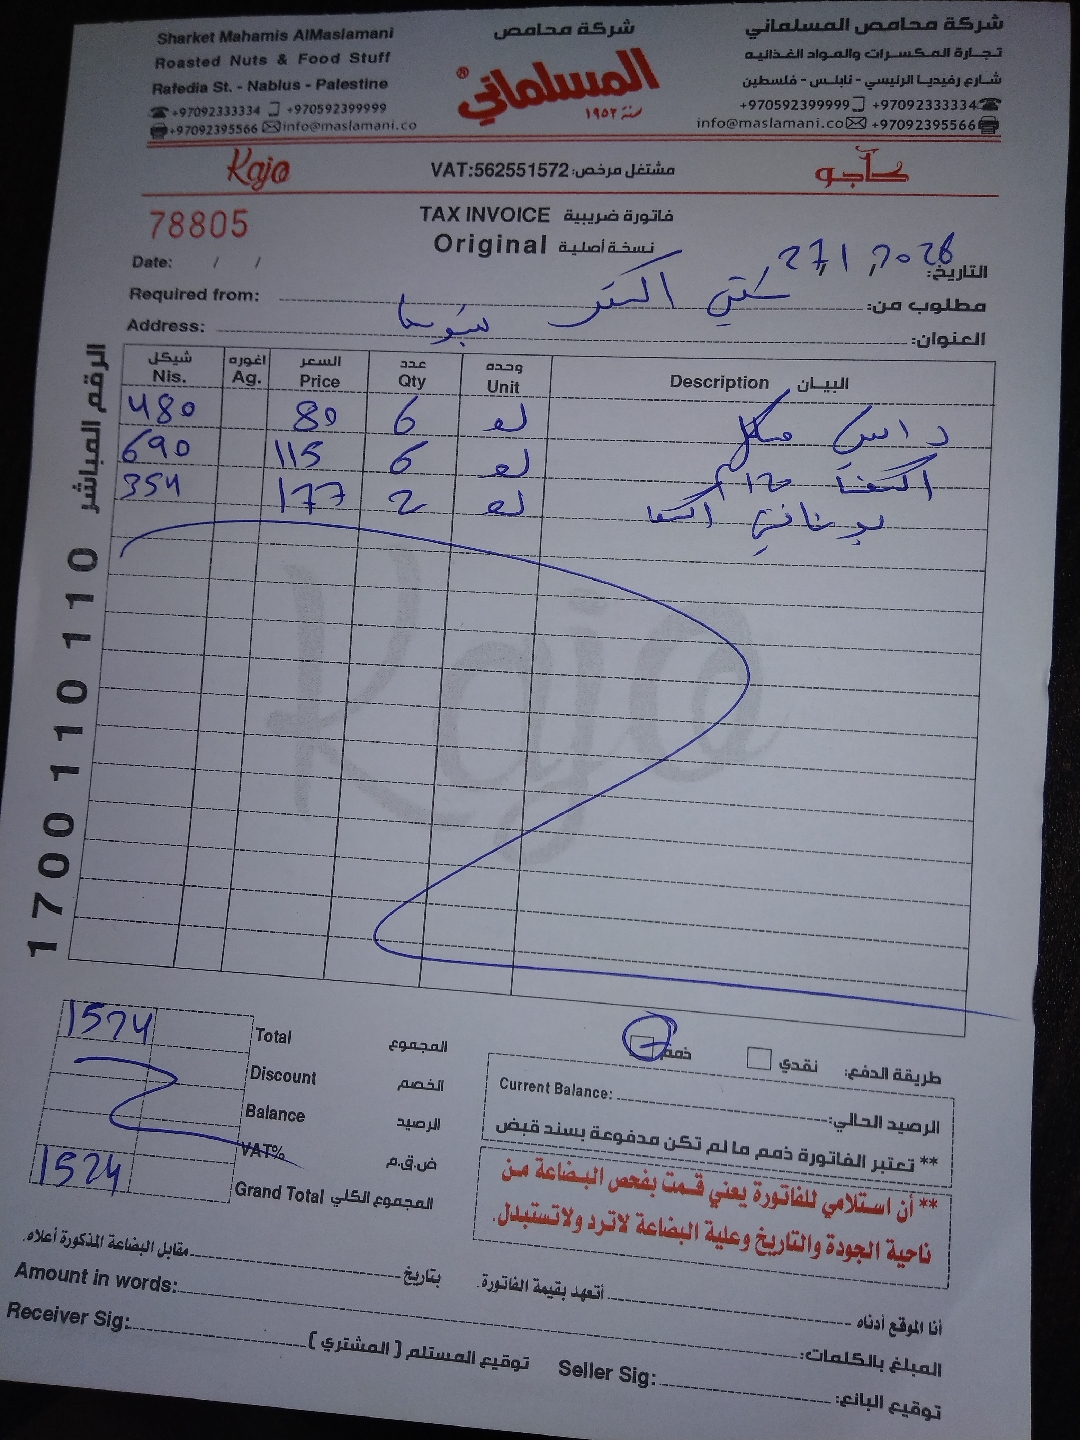 Sharket Mahamis AlMaslamani
Roasted Nuts & Food Stuff
Rafedia St. - Nablus - Palestine
+97092333334 +970592399999
+97092395566 info@maslamani.co
شركة محامص
المسلماني®
سنة ١٩٥٢
شركة محامص المسلماني
تجارة المكسرات والمواد الغذائيه
شارع رفيديا الرئيسي - نابلس - فلسطين
+970592399999 +97092333334
info@maslamani.co +97092395566
Kaja
VAT:562551572:مشتغل مرخص
كاجو
78805
TAX INVOICE فاتورة ضريبية
Original نسخة أصلية
Date: / /
التاريخ: 27,1,2026
Required from: مطلوب من: ستي
Address: العنوان:
شيكل اغوره السعر عدد وحده البيان
Nis. Ag. Price Qty Unit Description
480 80 6
690 115 6
354 177 2
Kaja
الرقم المباشر 1700 110 110
1524 Total المجموع
Discount الخصم
Balance الرصيد
VAT% ض.ق.م
1524 Grand Total المجموع الكلي
طريقة الدفع: نقدي ذمم
Current Balance: الرصيد الحالي:
** تعتبر الفاتورة ذمم ما لم تكن مدفوعة بسند قبض
** أن استلامي للفاتورة يعني قمت بفحص البضاعة من
ناحية الجودة والتاريخ وعلية البضاعة لاترد ولاتستبدل.
أنا الموقع أدناه أتعهد بقيمة الفاتورة. بتاريخ مقابل البضاعة المذكورة أعلاه.
Amount in words: المبلغ بالكلمات:
Receiver Sig: توقيع المستلم (المشتري) Seller Sig: توقيع البائع: